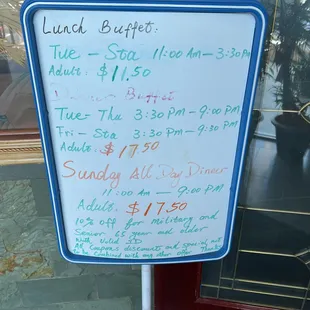 Lunch Buffet:
Tue - Sta 11:00 Am - 3:30 Pm
Adult: $11.50
Dinner Buffet
Tue- Thu 3:30 Pm - 9:00 Pm
Fri - Sta 3:30 Pm - 9:30 Pm
Adult: $17.50
Sunday All Day Dinner
11:00 Am - 9:00 PM
Adult: $17.50
10% off for military and
Senior 65 year and older
With Valid ID
All Coupons discounts and specials not
to be Combined with any other offer Thanks